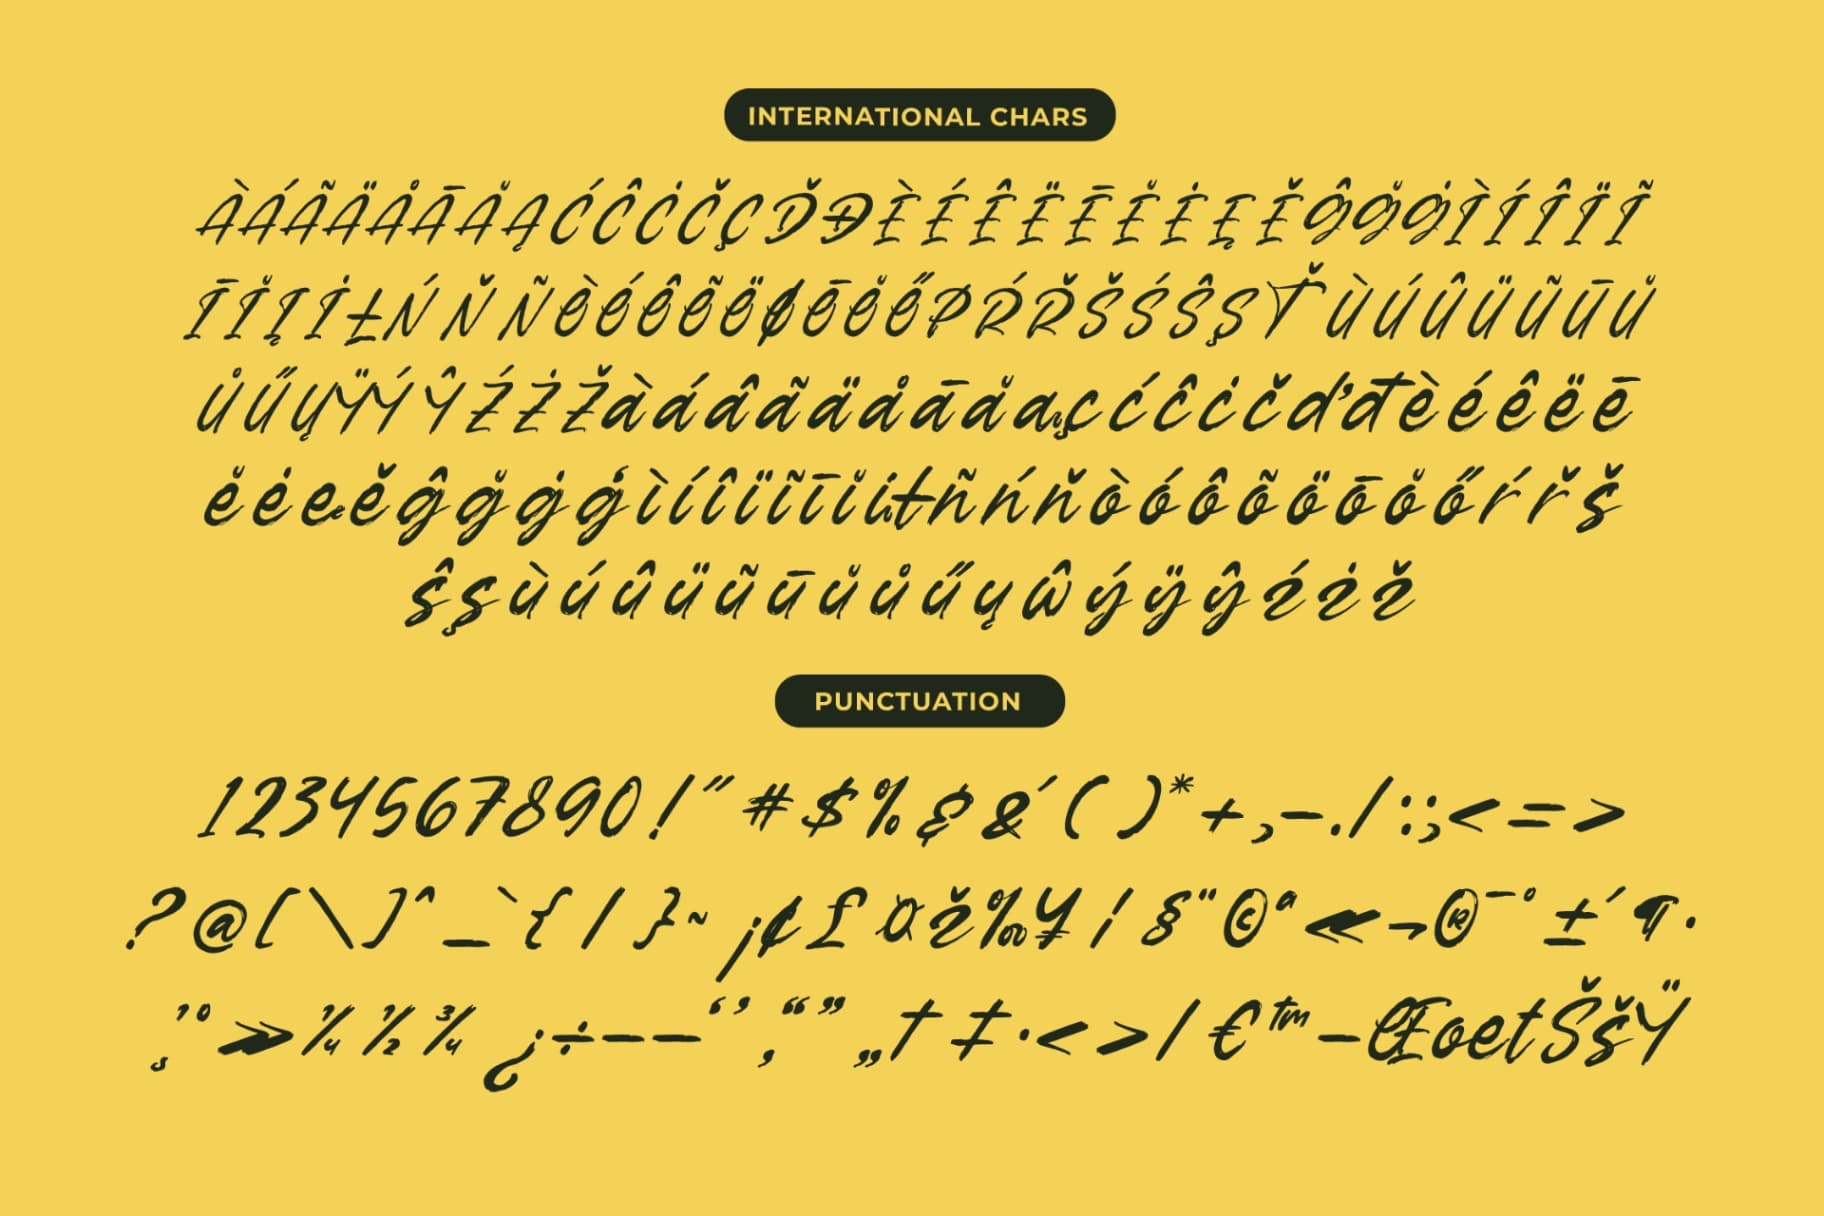 INTERNATIONAL CHARS
ÀÁÃÄÅĀĂĄĆĈĊČÇĎĐÈÉÊËĒĔĖĘĚĜĞĠÌÍÎÏĨ
ĪĬĮİŁŃŇÑÒÓÔÕÖØŌŎŐPŔŘŠŚŜŞŤÙÚÛÜŨŪŬ
ŮŰŲŸÝŶŹŻŽàáâãäåāăąçćĉċčďđèéêëē
ĕėęěĝğġģìíîïĩīĭįłñńňòóôõöōŏőŕřš
ŝşùúûüũūŭůűųŵýÿŷźżž
PUNCTUATION
1234567890!"#$%&&´()*+,-./:;<=>
?@[\]^_`{/}~¡¢£¤ž‰¥¦§¨©ª«¬®¯°±´¶·
¸¹º»¼½¾¿÷––‘’‚“”„†‡·<>/€™–ŒoetŠšŸ